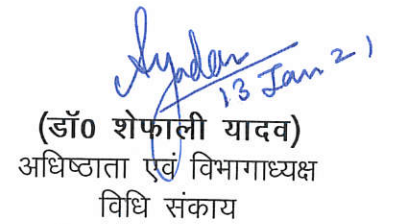 Syadav
13 Jan 21
(डॉ0 शेफाली यादव)
अधिष्ठाता एवं विभागाध्यक्ष
विधि संकाय